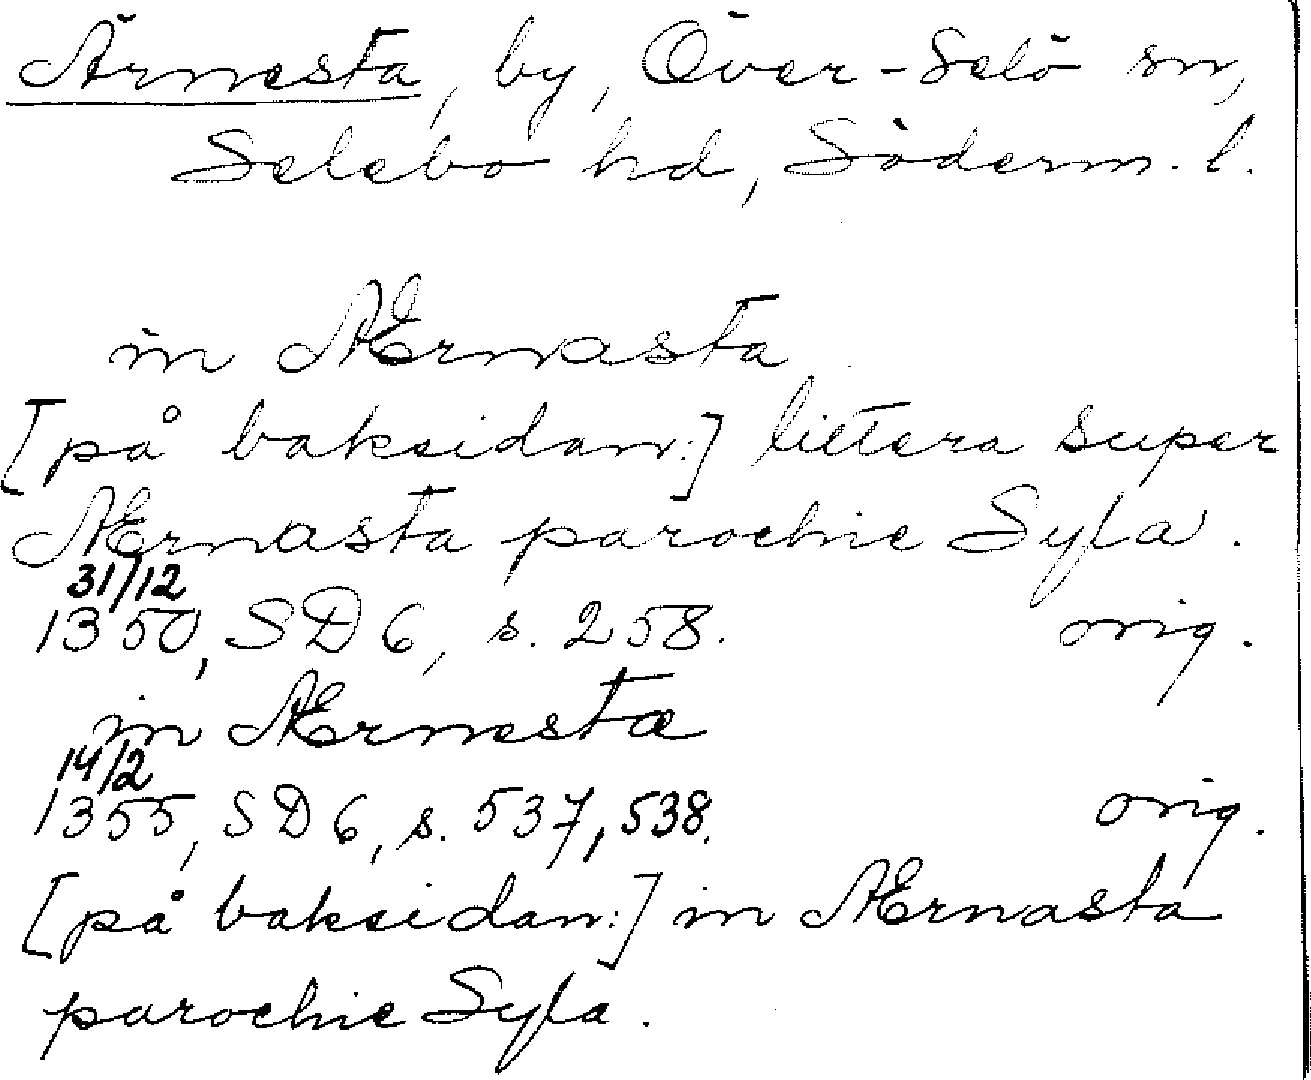 Ärnesta, by, Över-Selö sn,
Selebo hd, Söderm. l.
in Ærnasta
[på baksidan:] littera super
Ærnasta parochie Syla.
31/12
1350, SD 6, s. 258. orig.
in Ærnestæ
14/2
1355, SD 6, s. 537, 538. orig.
[på baksidan:] in Ærnasta
parochie Syla.